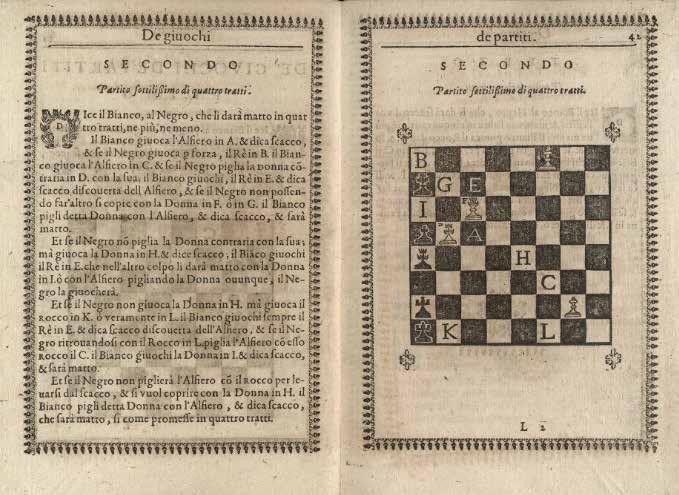 De giuochi
SECONDO
Partito sottilissimo di quattro tratti.
DIce il Bianco, al Negro, che li darà matto in quat
tro tratti, ne più, ne meno.
Il Bianco giuoca l'Alfiero in A. & dica scacco,
& se il Negro giuoca p forza, il Rè in B. il Bian
co giuoca l'Alfiero in C. & se il Negro piglia la Donna cō
traria in D. con la sua, il Bianco giuochi, il Rè in E. & dica
scacco discouerta dell Alfiero, & se il Negro non possen
do far'altro si copre con la Donna in F. ò in G. il Bianco
pigli detta Donna con l'Alfiero, & dica scacco, & sarà
matto.
Et se il Negro nō piglia la Donna contraria con la sua;
mà giuoca la Donna in H. & dice scacco, il Biāco giuochi
il Rè in E. che nell'altro colpo li darà matto con la Donna
in I. ò con l'Alfiero pigliando la Donna ouunque, il Ne
gro la giuocherà.
Et se il Negro non giuoca la Donna in H. mà giuoca il
rocco in K. ò veramente in L. il Bianco giuochi sempre il
Rè in E. & dica scacco discouerta dell'Alfiero, & se il Ne
gro ritrouandosi con il Rocco in L. piglia l'Alfiero cō esso
rocco il C. il Bianco giuochi la Donna in I. & dica scacco,
& sarà matto.
Et se il Negro non piglierà l'Alfiero cō il rocco per le
uarsi dal scacco, & si vuol coprire con la Donna in H. il
Bianco pigli detta Donna con l'Alfiero, & dica scacco,
che sarà matto, si come promesse in quattro tratti.
de partiti.
42
SECONDO
Partito sottilissimo di quattro tratti.
B
G E
I
A
H
C
K L
L 2